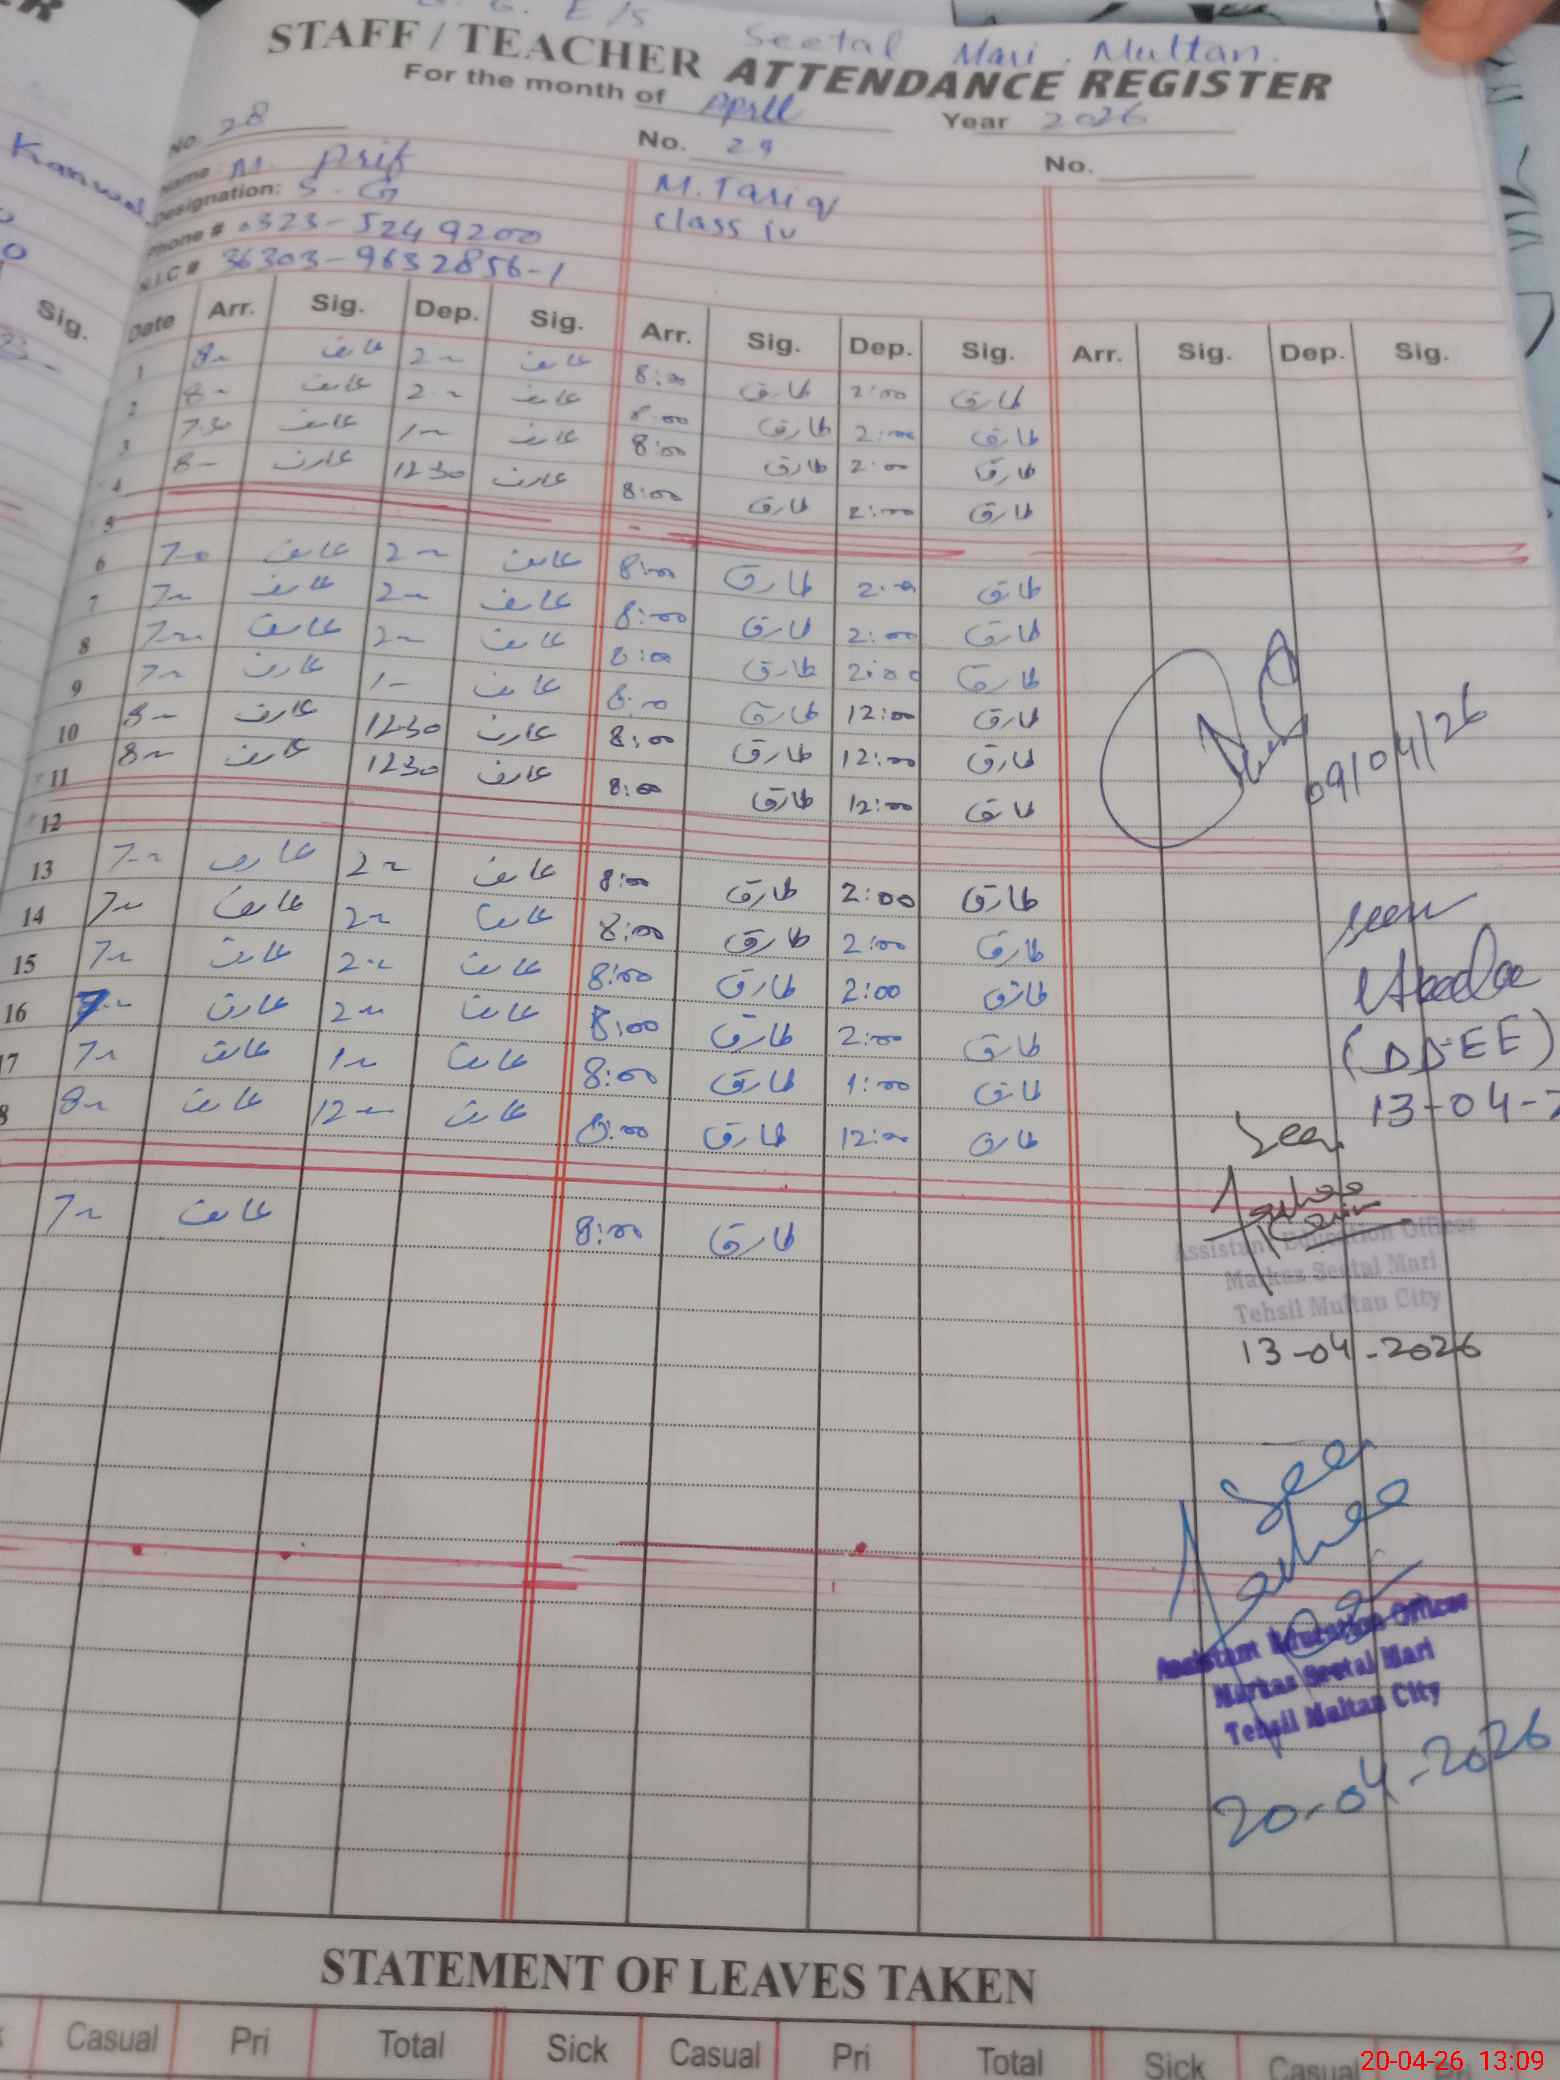 G. E/S Seetal Mari, Multan.
STAFF / TEACHER ATTENDANCE REGISTER
For the month of April Year 2026
No. 28 No. 29 No.
Name M. Arif M. Tariq
Designation: S. G class iv
Phone # 0323-5249200
N.I.C # 36303-9632856-1
Kanwal
Sig. Date Arr. Sig. Dep. Sig. Arr. Sig. Dep. Sig. Arr. Sig. Dep. Sig.
1 8~ عارف 2~ عارف 8:00 طارق 2:00 طارق
2 8~ عارف 2~ عارف 8:00 طارق 2:00 طارق
3 7.30 عارف 1~ عارف 8:00 طارق 2:00 طارق
4 8~ عارف 1230 عارف 8:00 طارق 2:00 طارق
5
6 7~ عارف 2~ عارف 8:00 طارق 2:00 طارق
7 7~ عارف 2~ عارف 8:00 طارق 2:00 طارق
8 7~ عارف 2~ عارف 8:00 طارق 2:00 طارق
9 7~ عارف 1~ عارف 8:00 طارق 12:00 طارق
10 8~ عارف 1230 عارف 8:00 طارق 12:00 طارق
11 8~ عارف 1230 عارف 8:00 طارق 12:00 طارق
09/04/26
12
13 7~ عارف 2~ عارف 8:00 طارق 2:00 طارق
14 7~ عارف 2~ عارف 8:00 طارق 2:00 طارق
15 7~ عارف 2~ عارف 8:00 طارق 2:00 طارق
16 7~ عارف 2~ عارف 8:00 طارق 2:00 طارق
17 7~ عارف 1~ عارف 8:00 طارق 1:00 طارق
8 8~ عارف 12~ عارف 8:00 طارق 12:00 طارق
seen
(DDEE)
13-04-2
7~ عارف 8:00 طارق
Seen
Assistant Education Officer
Markaz Seetal Mari
Tehsil Multan City
13-04-2026
Seen
Assistant Education Officer
Markaz Seetal Mari
Tehsil Multan City
20-04-2026
STATEMENT OF LEAVES TAKEN
Casual Pri Total Sick Casual Pri Total Sick Casual Pri
20-04-26 13:09